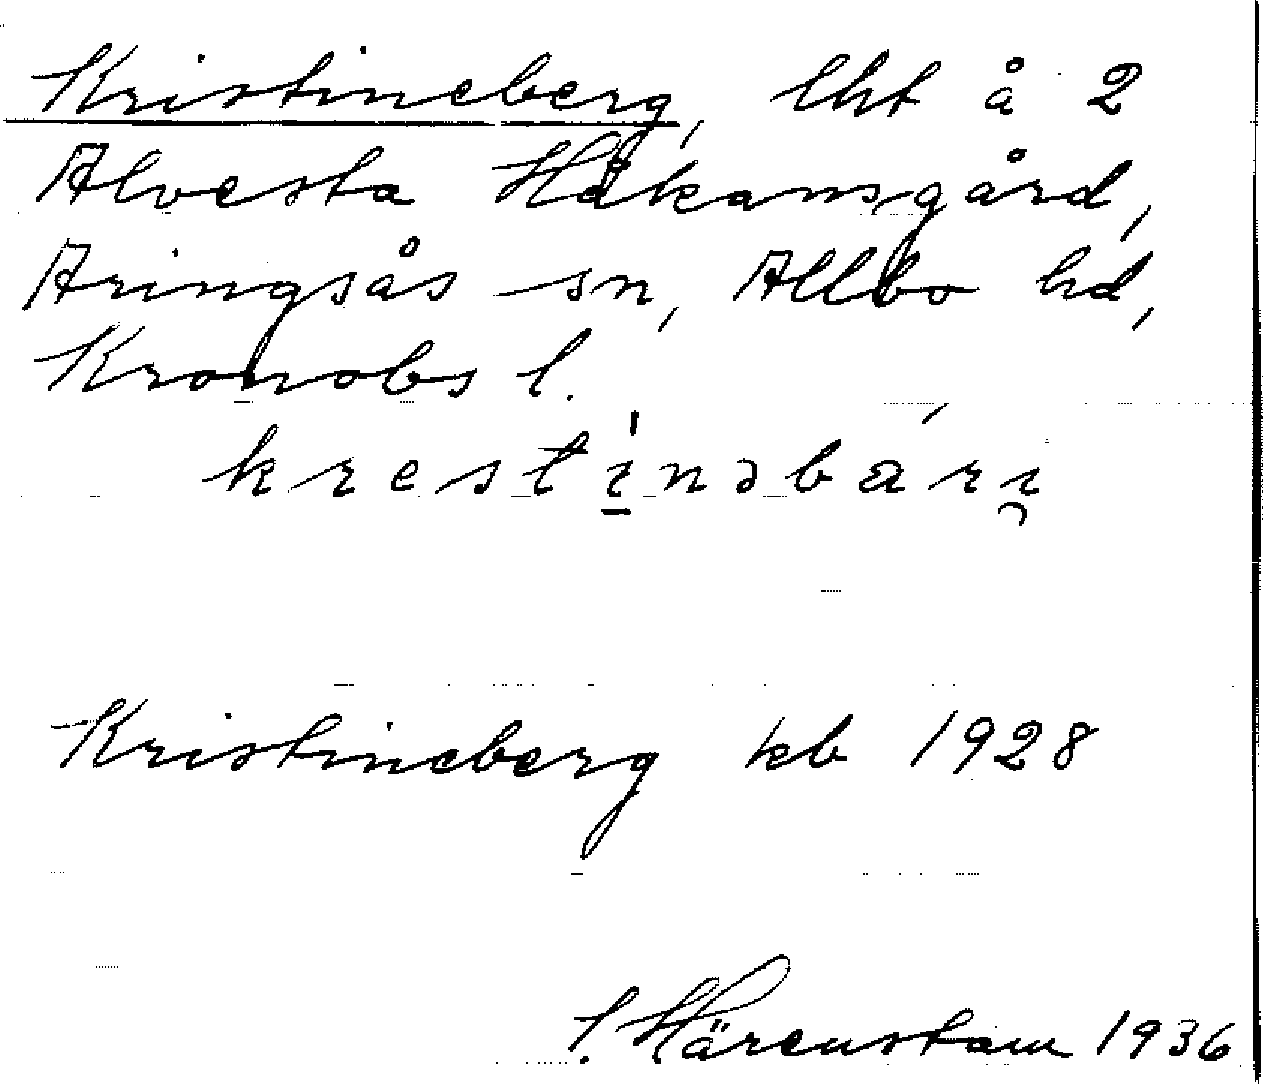 Kristineberg, lht å 2
Alvesta Håkansgård,
Aringsås sn, Allbo hd,
Kronobs l.
krest í̱nəbári̯
Kristineberg kb 1928
S. Härenstam 1936